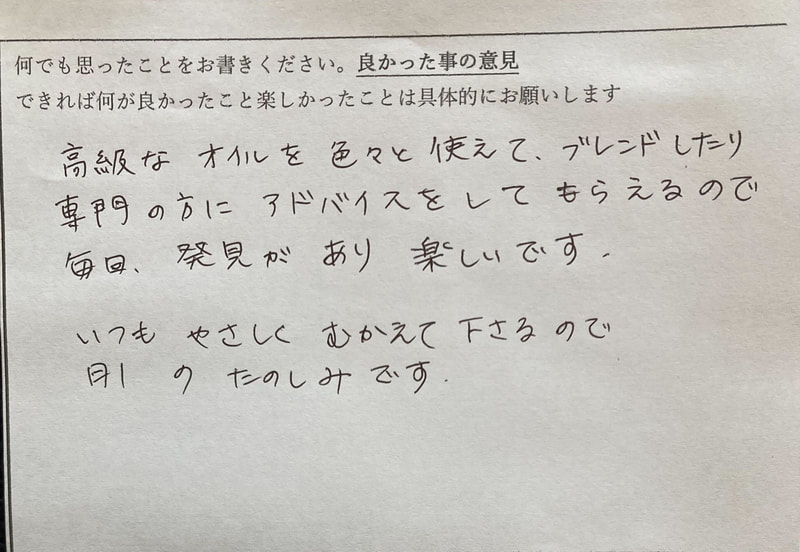 何でも思ったことをお書きください。良かった事の意見
できれば何が良かったこと楽しかったことは具体的にお願いします
高級な オイルを 色々と 使えて、ブレンドしたり
専門の方に アドバイスをして もらえるので
毎回、発見が あり 楽しいです.
いつも やさしく むかえて 下さるので
月1 の たのしみです.